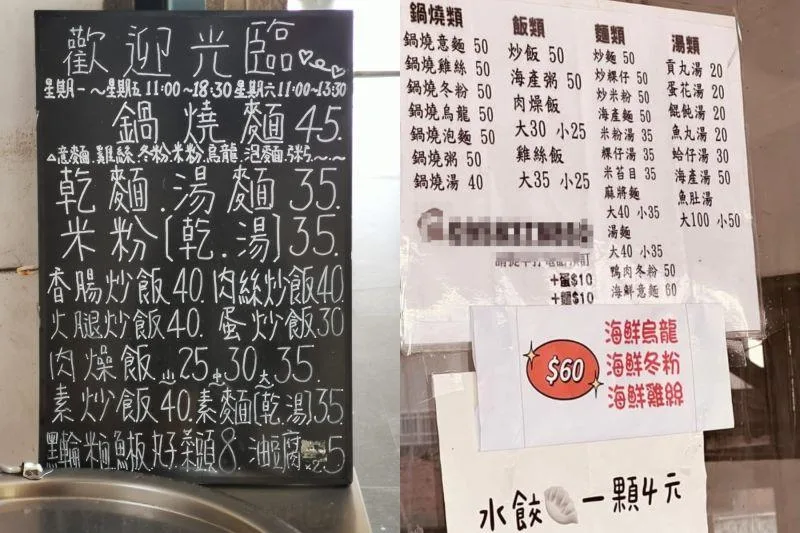 歡迎光臨
星期一~星期五11:00~18:30 星期六11:00~13:30
鍋燒麵45.
△意麵.雞絲.冬粉.米粉.烏龍.泡麵.粥.~.~.
乾麵.湯麵35.
米粉(乾.湯)35.
香腸炒飯40.肉絲炒飯40.
火腿炒飯40.蛋炒飯30
肉燥飯小25.中30.大35.
素炒飯40.素麵(乾.湯)35
黑輪.米血.魚板.丸子.菜頭8.油豆腐
鍋燒類
鍋燒意麵 50
鍋燒雞絲 50
鍋燒冬粉 50
鍋燒烏龍 50
鍋燒泡麵 50
鍋燒粥 50
鍋燒湯 40
飯類
炒飯 50
海產粥 50
肉燥飯
大30 小25
雞絲飯
大35 小25
麵類
炒麵 50
炒粿仔 50
炒米粉 50
海產麵 50
米粉湯 35
粿仔湯 35
米苔目 35
麻將麵
大40 小35
湯麵
大40 小35
鴨肉冬粉 50
海鮮意麵 60
湯類
貢丸湯 20
蛋花湯 20
餛飩湯 20
魚丸湯 20
蛤仔湯 30
海產湯 50
魚肚湯
大100 小50
+蛋$10
+麵$10
$60
海鮮烏龍
海鮮冬粉
海鮮雞絲
水餃 一顆4元